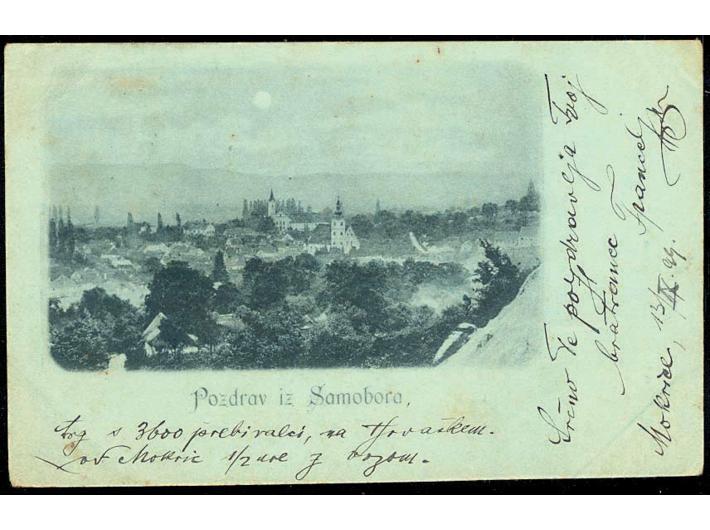 Pozdrav iz Samobora,
trg s 3600 prebivalci, na Hrvaškem.
od Mokric 1/2 ure z vozom.
Srčno Te pozdravlja Tvoj
bratranec Francelj
Mokrice, 13/IX. 99.